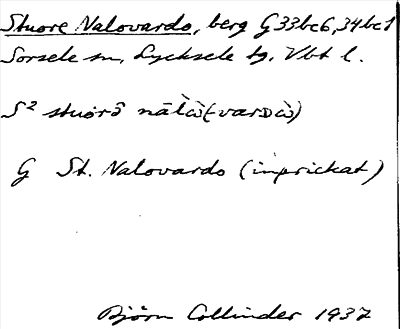 Stuore Nalovardo, berg G33bc6,34bc1
Sorsele sn, Lycksele tg. Vbt l.
S² stuorô
G St. Nalovardo (inprickat)
Björn Collinder 1937